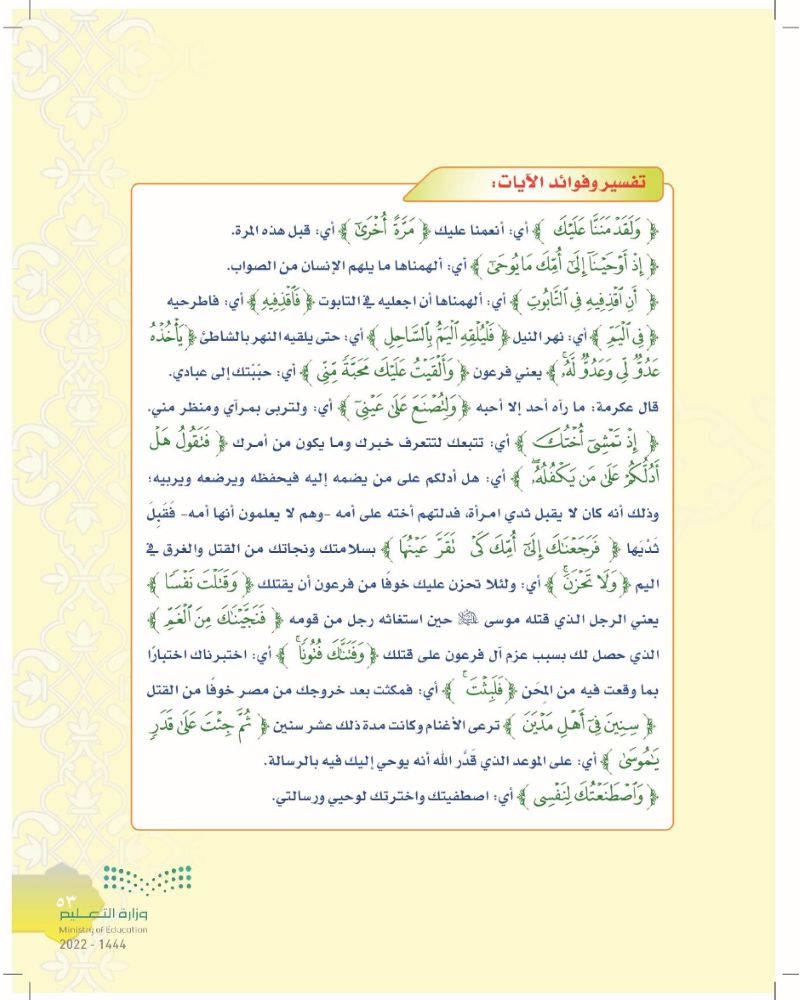 تفسير وفوائد الآيات:
﴿ وَلَقَدْ مَنَنَّا عَلَيْكَ ﴾ أي: أنعمنا عليك ﴿ مَرَّةً أُخْرَىٰٓ ﴾ أي: قبل هذه المرة.
﴿ إِذْ أَوْحَيْنَآ إِلَىٰٓ أُمِّكَ مَا يُوحَىٰٓ ﴾ أي: ألهمناها ما يلهم الإنسان من الصواب.
﴿ أَنِ ٱقْذِفِيهِ فِى ٱلتَّابُوتِ ﴾ أي: ألهمناها أن اجعليه في التابوت ﴿ فَٱقْذِفِيهِ ﴾ أي: فاطرحيه
﴿ فِى ٱلْيَمِّ ﴾ أي: نهر النيل ﴿ فَلْيُلْقِهِ ٱلْيَمُّ بِٱلسَّاحِلِ ﴾ أي: حتى يلقيه النهر بالشاطئ ﴿ يَأْخُذْهُ
عَدُوٌّ لِّى وَعَدُوٌّ لَّهُۥ ﴾ يعني فرعون ﴿ وَأَلْقَيْتُ عَلَيْكَ مَحَبَّةً مِّنِّى ﴾ أي: حبّبتك إلى عبادي.
قال عكرمة: ما رآه أحد إلا أحبه ﴿ وَلِتُصْنَعَ عَلَىٰ عَيْنِىٓ ﴾ أي: ولتربى بمرآي ومنظر مني.
﴿ إِذْ تَمْشِىٓ أُخْتُكَ ﴾ أي: تتبعك لتتعرف خبرك وما يكون من أمرك ﴿ فَتَقُولُ هَلْ
أَدُلُّكُمْ عَلَىٰ مَن يَكْفُلُهُۥ ﴾ أي: هل أدلكم على من يضمه إليه فيحفظه ويرضعه ويربيه؛
وذلك أنه كان لا يقبل ثدي امرأة، فدلتهم أخته على أمه -وهم لا يعلمون أنها أمه- فَقَبِلَ
ثَدْيَها ﴿ فَرَجَعْنَٰكَ إِلَىٰٓ أُمِّكَ كَىْ تَقَرَّ عَيْنُهَا ﴾ بسلامتك ونجاتك من القتل والغرق في
اليم ﴿ وَلَا تَحْزَنَ ﴾ أي: ولئلا تحزن عليك خوفًا من فرعون أن يقتلك ﴿ وَقَتَلْتَ نَفْسًا ﴾
يعني الرجل الذي قتله موسى ﷺ حين استغاثه رجل من قومه ﴿ فَنَجَّيْنَٰكَ مِنَ ٱلْغَمِّ ﴾
الذي حصل لك بسبب عزم آل فرعون على قتلك ﴿ وَفَتَنَّٰكَ فُتُونًا ﴾ أي: اختبرناك اختبارًا
بما وقعت فيه من المِحَن ﴿ فَلَبِثْتَ ﴾ أي: فمكثت بعد خروجك من مصر خوفًا من القتل
﴿ سِنِينَ فِىٓ أَهْلِ مَدْيَنَ ﴾ ترعى الأغنام وكانت مدة ذلك عشر سنين ﴿ ثُمَّ جِئْتَ عَلَىٰ قَدَرٍ
يَٰمُوسَىٰ ﴾ أي: على الموعد الذي قَدَّر الله أنه يوحي إليك فيه بالرسالة.
﴿ وَٱصْطَنَعْتُكَ لِنَفْسِى ﴾ أي: اصطفيتك واخترتك لوحيي ورسالتي.
٥٣
وزارة التعـليم
Ministry of Education
2022 - 1444